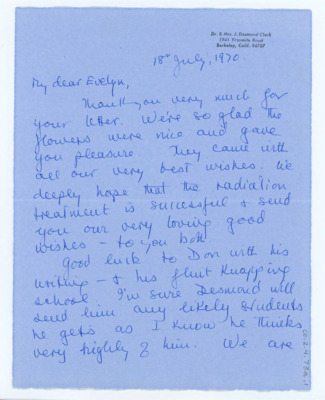 Dr. & Mrs. J. Desmond Clark
1941 Yosemite Road
Berkeley, Calif. 94707
18th July, 1970.
My dear Evelyn,
Thank you very much for
your letter. We're so glad the
flowers were nice and gave
you pleasure. They came with
all our very best wishes. We
deeply hope that the radiation
treatment is successful & send
you our very loving good
wishes – to you both
Good luck to Don with his
writing – & his flint knapping
school. I'm sure Desmond will
send him any likely students
he gets as I know he thinks
very highly of him. We are